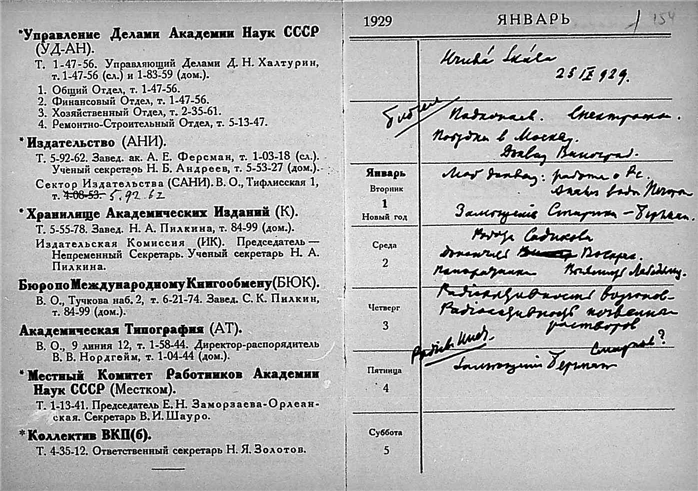 *Управление Делами Академии Наук СССР
(УД-АН).
Т. 1-47-56. Управляющий Делами Д. Н. Халтурин,
т. 1-47-56 (сл.) и 1-83-59 (дом.).
1. Общий Отдел, т. 1-47-56.
2. Финансовый Отдел, т. 1-47-56.
3. Хозяйственный Отдел, т. 2-35-61.
4. Ремонтно-Строительный Отдел, т. 5-13-47.
*Издательство (АНИ).
Т. 5-92-62. Завед. ак. А. Е. Ферсман, т. 1-03-18 (сл.).
Ученый секретарь Н. Б. Андреев, т. 5-53-27 (дом.).
Сектор Издательства (САНИ). В. О., Тифлисская 1,
т. 4-08-53. 5.92 62
*Хранилище Академических Изданий (К).
Т. 5-55-78. Завед. Н. А. Пилкина, т. 84-99 (дом.).
Издательская Комиссия (ИК). Председатель —
Непременный Секретарь. Ученый секретарь Н. А.
Пилкина.
Бюро по Международному Книгообмену (БЮК).
В. О., Тучкова наб. 2, т. 6-21-74. Завед. С. К. Пилкин,
т. 84-99 (дом.).
Академическая Типография (АТ).
В. О., 9 линия 12, т. 1-58-44. Директор-распорядитель
В. В. Нордгейм, т. 1-04-44 (дом.).
*Местный Комитет Работников Академии
Наук СССР (Местком).
Т. 1-13-41. Председатель Е. Н. Заморзаева-Орлеан-
ская. Секретарь В. И. Шауро.
*Коллектив ВКП(б).
Т. 4-35-12. Ответственный секретарь Н. Я. Золотов.
1929 ЯНВАРЬ 154
Hrubá Skála
25 IX 929.
Поездки в Москву.
Доклад Виноград.
Январь
Вторник
1
Новый год
работа о Ра.
Среда
2
Четверг
3
Радиоактивность
Радиоактивность
растворов
Пятница
4
Суббота
5